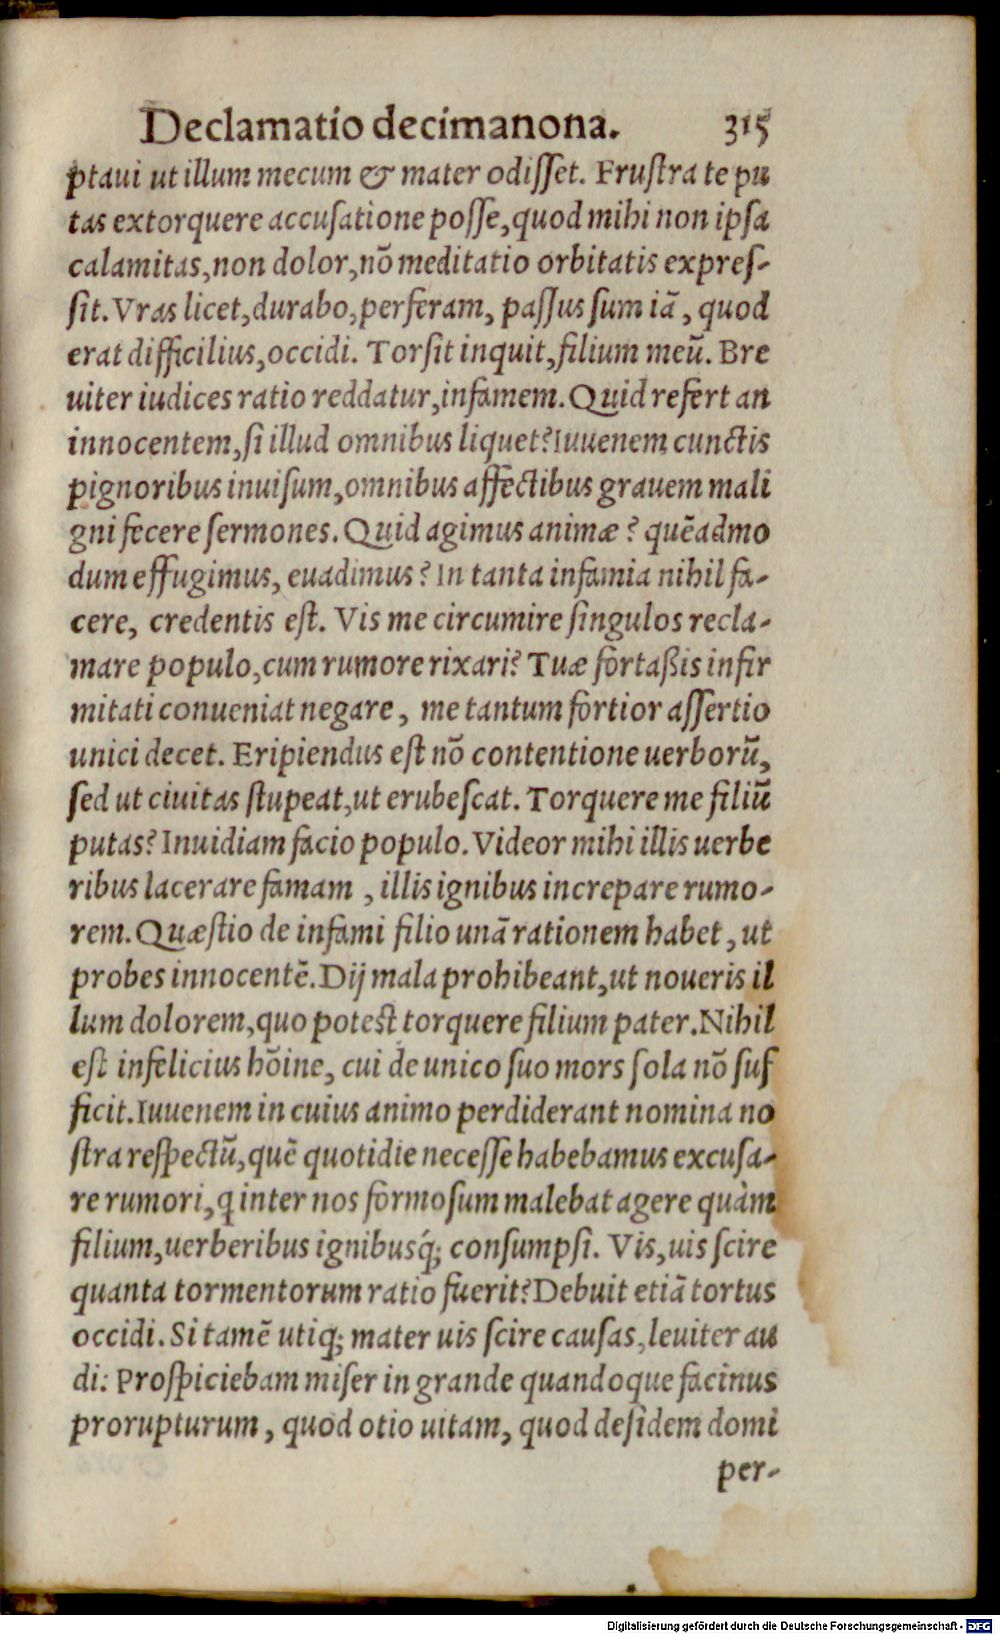 Declamatio decimanona. 315
ptaui ut illum mecum & mater odisset. Frustra te pu
tas extorquere accusatione posse, quod mihi non ipsa
calamitas, non dolor, nō meditatio orbitatis expres-
sit. Vras licet, durabo, perferam, passus sum iā, quod
erat difficilius, occidi. Torsit inquit, filium meū. Bre
uiter iudices ratio reddatur, infamem. Quid refert an
innocentem, si illud omnibus liquet? Iuuenem cunctis
pignoribus inuisum, omnibus affectibus grauem mali
gni fecere sermones. Quid agimus animæ? quēadmo
dum effugimus, euadimus? In tanta infamia nihil fa-
cere, credentis est. Vis me circumire singulos recla-
mare populo, cum rumore rixari? Tuæ fortaßis infir
mitati conueniat negare, me tantum fortior assertio
unici decet. Eripiendus est nō contentione uerborū,
sed ut ciuitas stupeat, ut erubescat. Torquere me filiū
putas? Inuidiam facio populo. Videor mihi illis uerbe
ribus lacerare famam, illis ignibus increpare rumo-
rem. Quæstio de infami filio unā rationem habet, ut
probes innocentē. Dij mala prohibeant, ut noueris il
lum dolorem, quo potest torquere filium pater. Nihil
est infelicius hōine, cui de unico suo mors sola nō suf
ficit. Iuuenem in cuius animo perdiderant nomina no
stra respectū, quē quotidie necesse habebamus excusa-
re rumori, q inter nos formosum malebat agere quàm
filium, uerberibus ignibusq́; consumpsi. Vis, uis scire
quanta tormentorum ratio fuerit? Debuit etiā tortus
occidi. Si tamē utiq; mater uis scire causas, leuiter au
di: Prospiciebam miser in grande quandoque facinus
prorupturum, quod otio uitam, quod desidem domi
per-
Digitalisierung gefördert durch die Deutsche Forschungsgemeinschaft - DFG